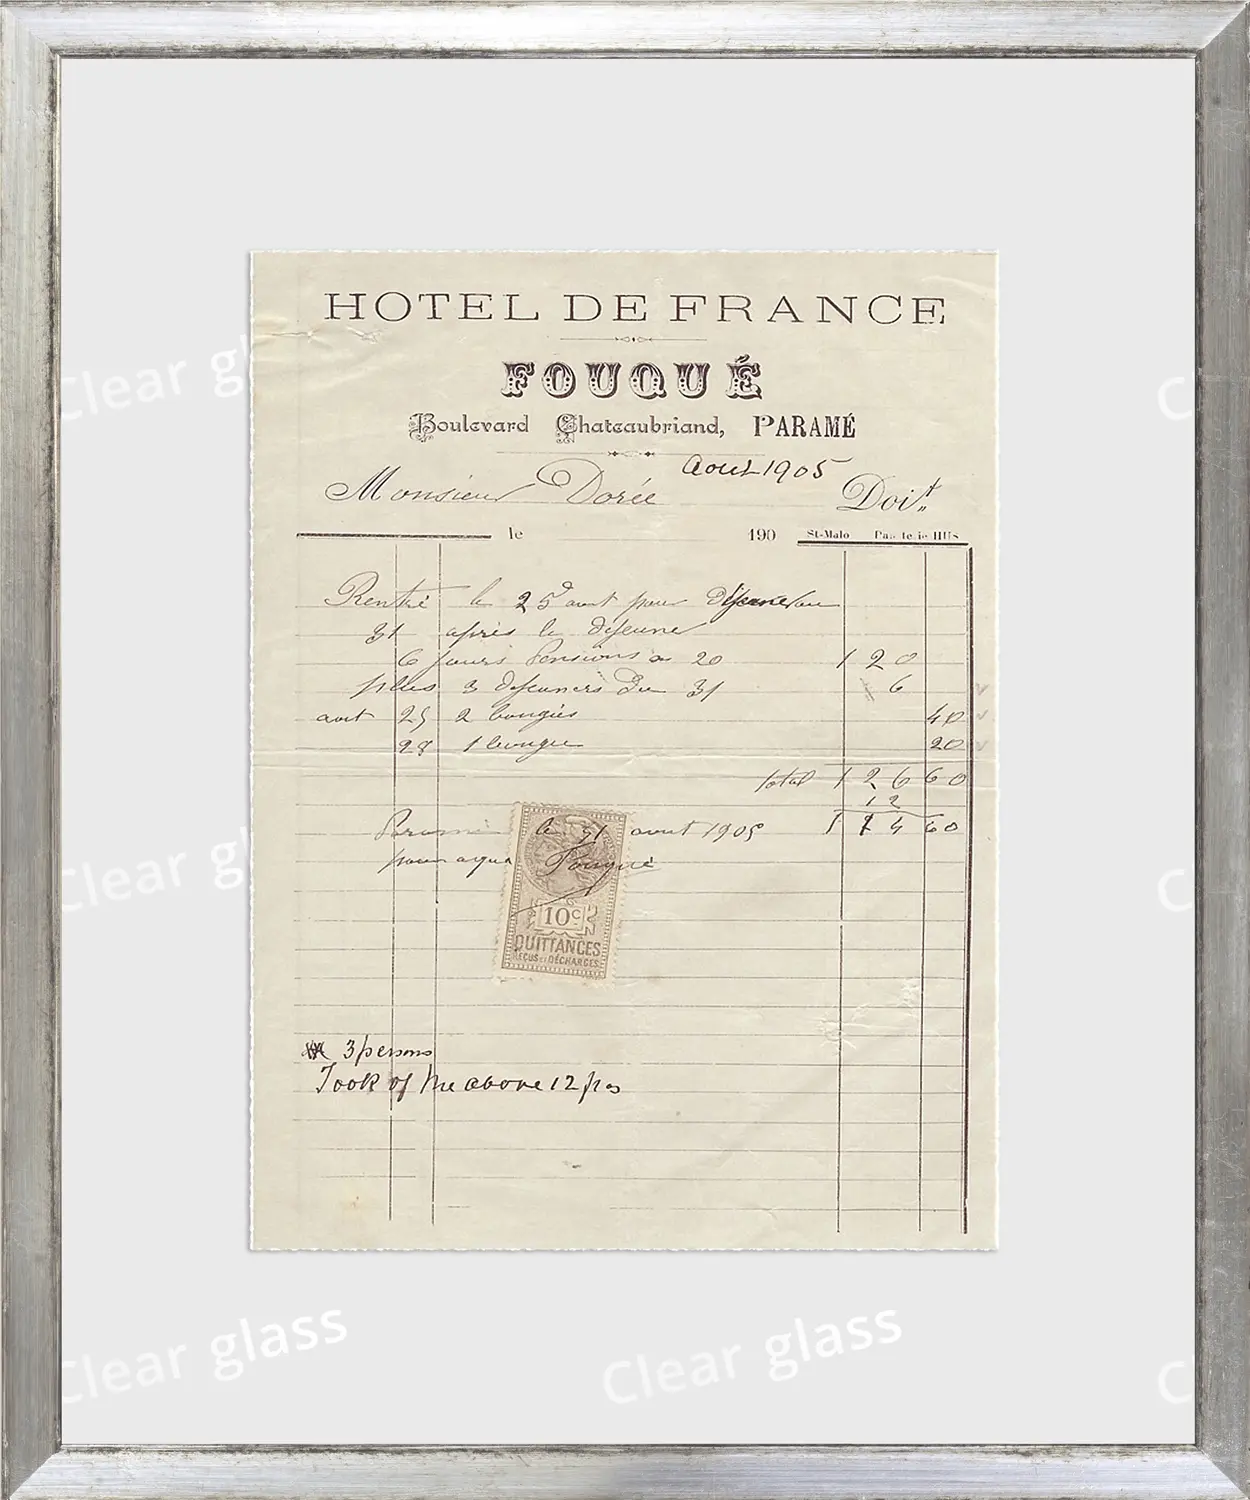 HOTEL DE FRANCE
FOUQUÉ
Boulevard Chateaubriand, PARAMÉ
Aout 1905
Monsieur Dorée Doit
le 190 St-Malo
Rentré le 25 aout pour déjeuner
31 après le dejeuner
6 jours Pensions a 20 120
plus 3 dejeuners du 31 6
aout 25 2 bougies 40
28 1 bougie 20
total 126 60
12
114 60
Paramé le 31 aout 1905
pour acquit Fouqué
10c
QUITTANCES
REÇUS ET DÉCHARGES
3 persons
Took of the above 12 frs
Clear glass
Clear glass
Clear glass
Clear glass